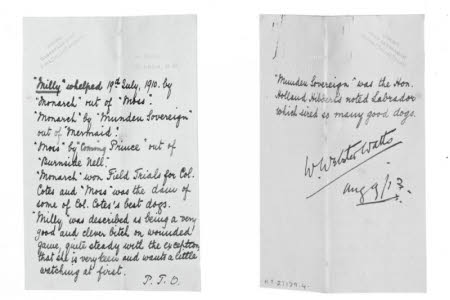 "Milly" whelped 19th July, 1910. by
"Monarch" out of "Moss".
"Monarch" by "Munden Sovereign"
out of "Mermaid".
"Moss" by "Coming Prince" out of
"Burnside Nell".
"Monarch" won Field Trials for Col.
Cotes and "Moss" was the dam of
some of Col. Cotes's best dogs.
"Milly" was described as being a very
good and clever bitch on wounded
game, quite steady with the exception
that she is very keen and wants a little
watching at first.
P.T.O.
"Munden Sovereign" was the Hon.
Holland Hibbert's noted Labrador
which sired so many good dogs.
W. Webster Watts
Aug 9/13.